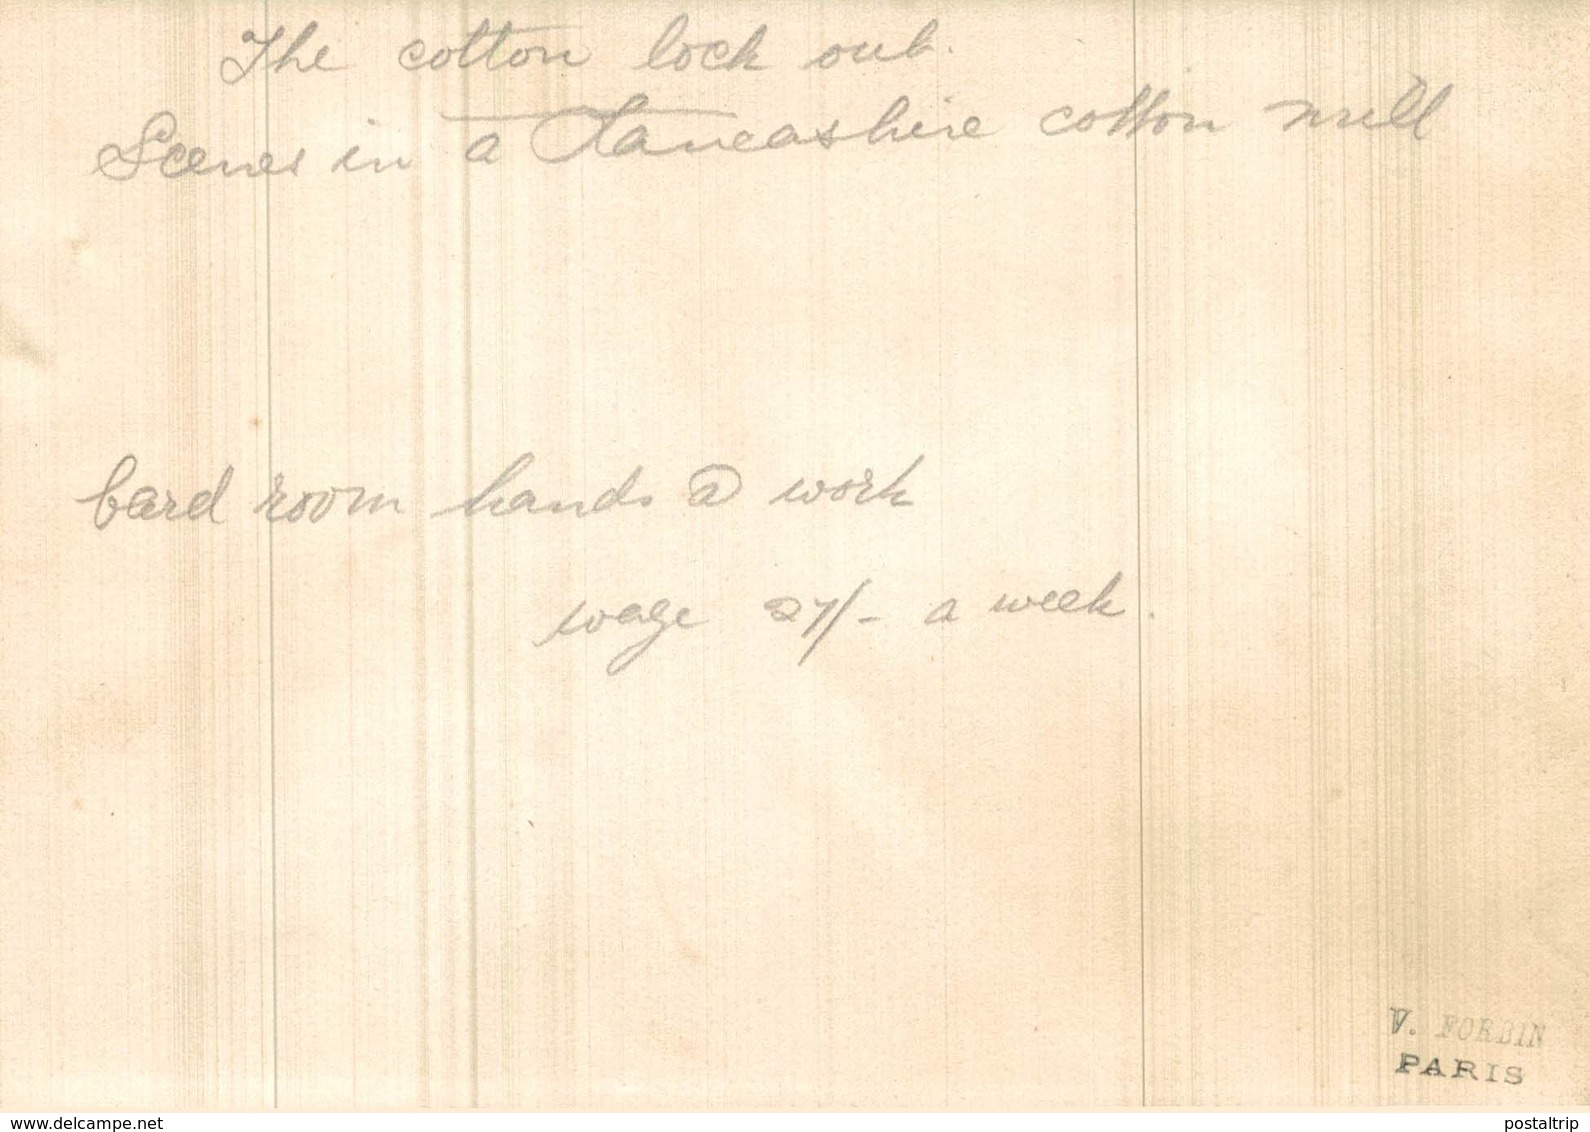 The cotton lock out.
Scenes in a Lancashire cotton mill
Card room hands @ work
wage 27/- a week.
V. FORBIN
PARIS
www.delcampe.net
postaltrip